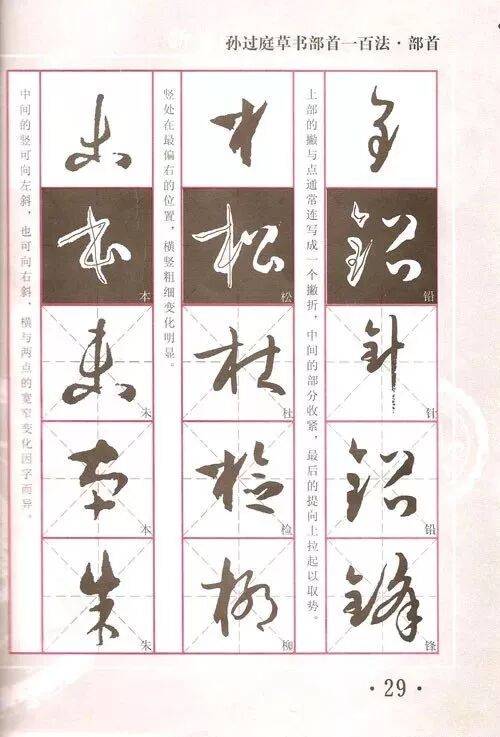 孙过庭草书部首一百法·部首
铅
针
铅
锋
上部的撇与点通常连写成一个撇折，中间的部分收紧，最后的提向上拉起以取势。
松
杜
检
柳
竖处在最偏右的位置，横竖粗细变化明显。
本
朱
本
朱
中间的竖可向左斜，也可向右斜，横与两点的宽窄变化因字而异。
·29·